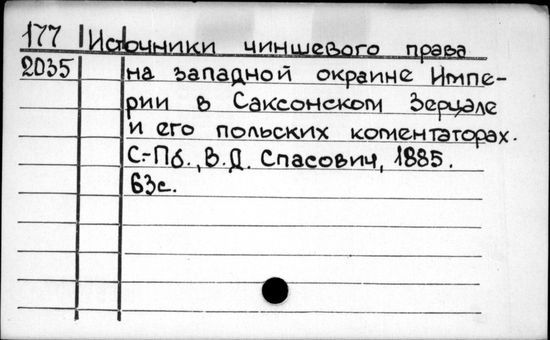 177 Источники чиншевого права
2035 на западной окраине Импе-
рии в Саксонском Зерцале
и его польских коментаторах.
С.-Пб., В.Д. Спасович, 1885.
63с.